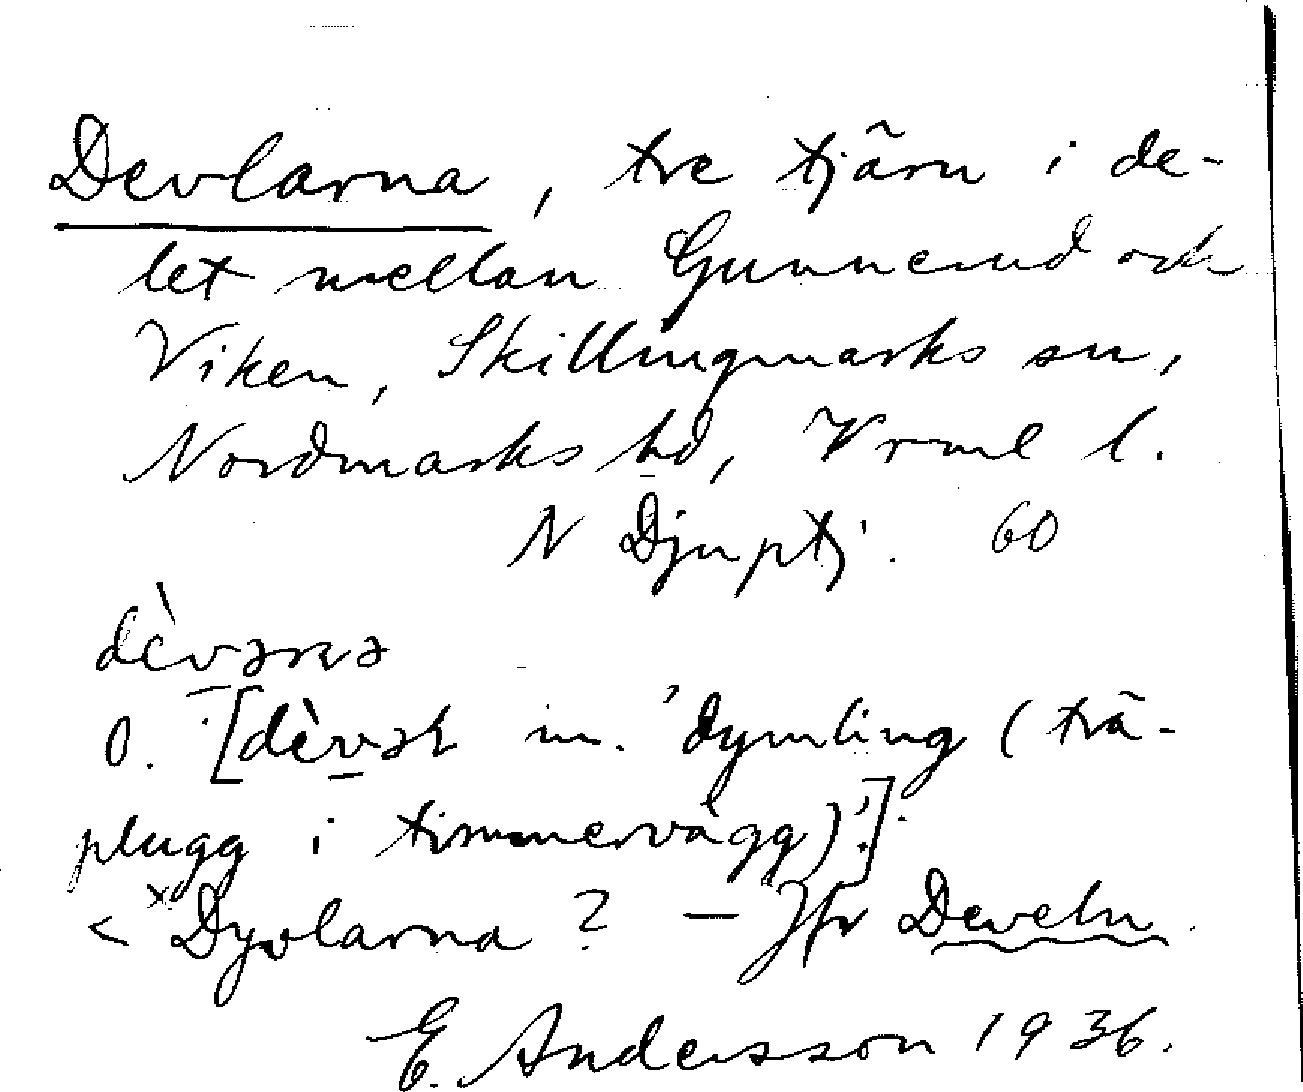 Devlarna, tre tjärn i de-
let mellan Gunnerud och
Viken, Skillingmarks sn,
Nordmarks hd, Vrml l.
N Djuptj. 60
dèvəɳa
o. [dèvəɽ m. 'dymling (trä-
plugg i timmervägg)'].
< ˣDyvlarna? — Jfr Develn.
E. Andersson 1936.